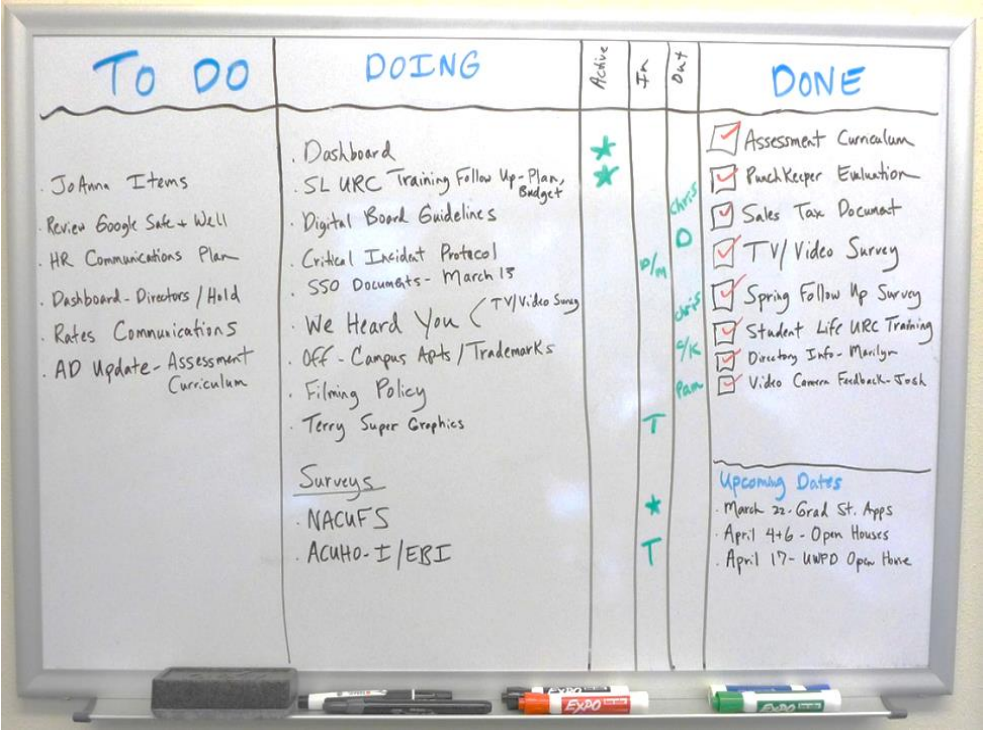 TO DO
JoAnna Items
Review Google Safe + Well
HR Communications Plan
Dashboard - Directors / Hold
Rates Communications
AD Update - Assessment
Curriculum
DOING
Active
In
Out
Dashboard
SL URC Training Follow Up - Plan,
Budget
Chris
Digital Board Guidelines
D
Critical Incident Protocol
P/M
SSO Documents - March 15
We Heard You < TV/Video Survey
Chris
Off - Campus Apts / Trademarks
C/K
Filming Policy
Pam
Terry Super Graphics
T
Surveys
NACUFS
ACUHO-I/EBI
T
DONE
Assessment Curriculum
PunchKeeper Evaluation
Sales Tax Document
TV/Video Survey
Spring Follow Up Survey
Student Life URC Training
Directory Info - Marilyn
Video Camera Feedback - Josh
Upcoming Dates
March 22 - Grad St. Apps
April 4+6 - Open Houses
April 17 - UWPD Open House
EXPO
EXPO
EXPO